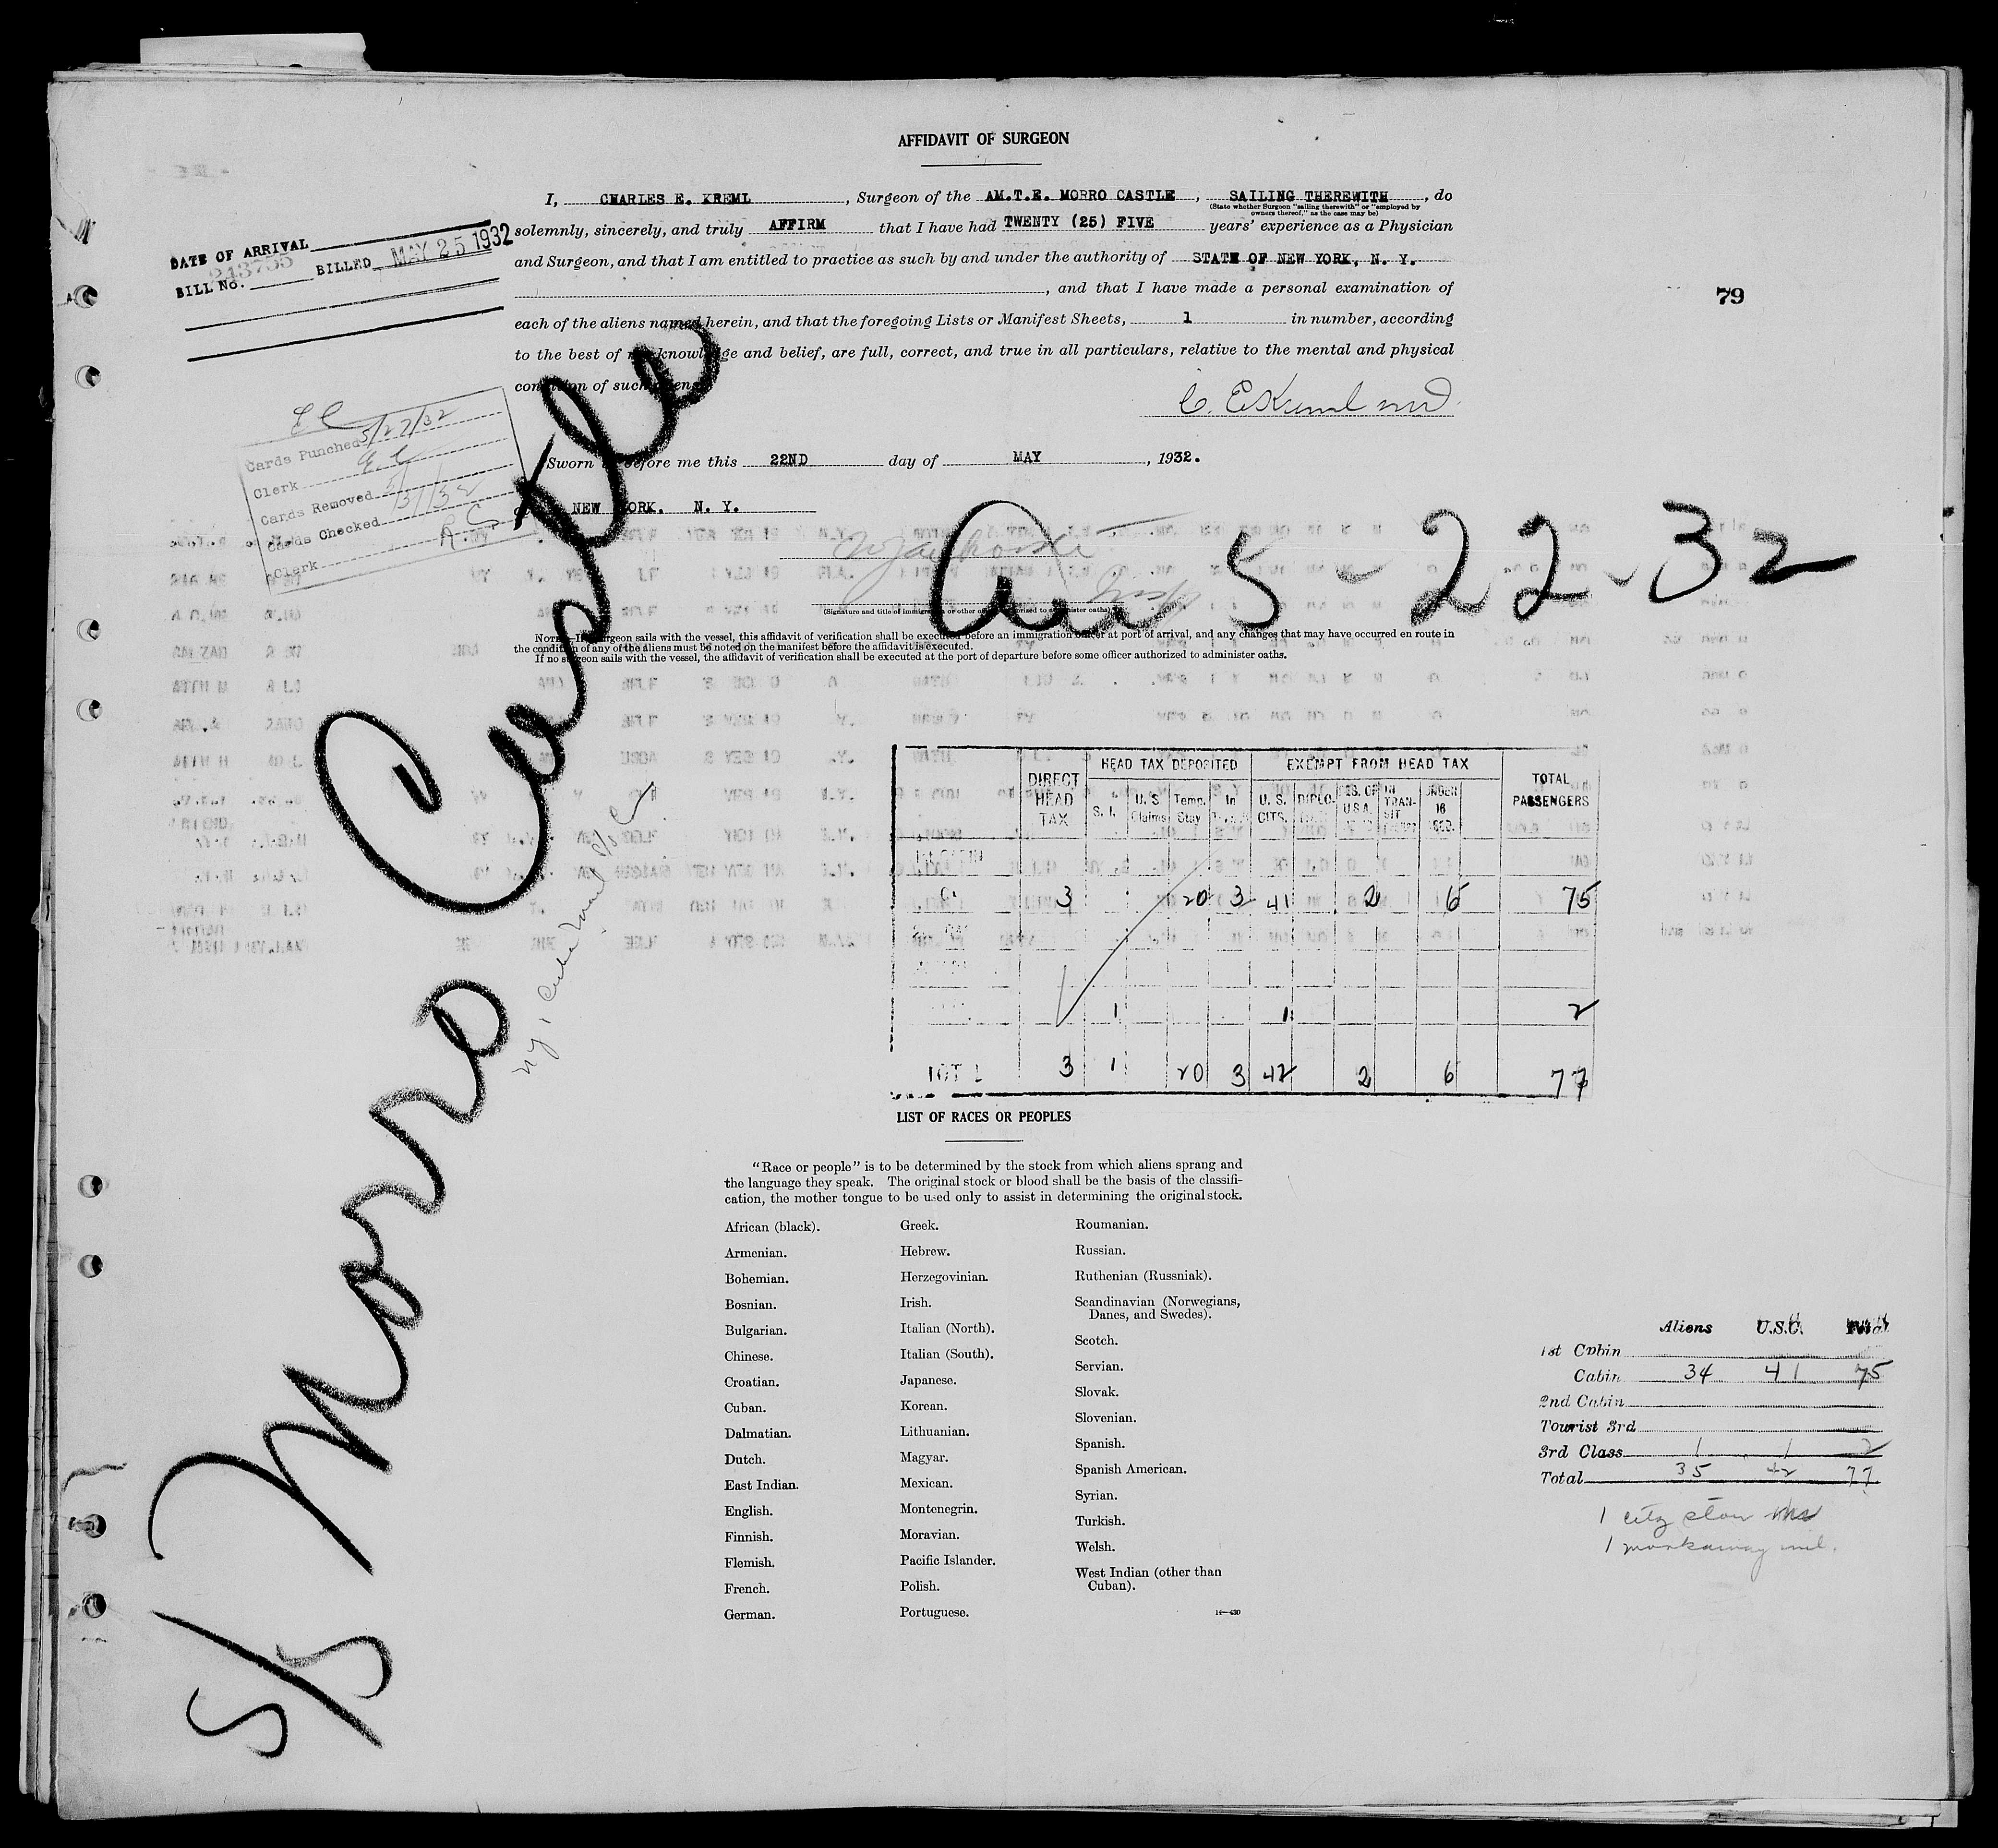 AFFIDAVIT OF SURGEON
I, CHARLES E. KREML, Surgeon of the AM.T.E. MORRO CASTLE, SAILING THEREWITH, do
(State whether Surgeon "sailing therewith" or "employed by
owners thereof," as the case may be)
solemnly, sincerely, and truly AFFIRM that I have had TWENTY (25) FIVE years' experience as a Physician
and Surgeon, and that I am entitled to practice as such by and under the authority of STATE OF NEW YORK, N. Y.
, and that I have made a personal examination of
each of the aliens named herein, and that the foregoing Lists or Manifest Sheets, 1 in number, according
to the best of my knowledge and belief, are full, correct, and true in all particulars, relative to the mental and physical
condition of such aliens.
C. E. Kreml M.D.
DATE OF ARRIVAL
BILL No. 213755 BILLED MAY 25 1932
79
Cards Punched 5/27/32
Clerk
Cards Removed
Cards Checked 5/31/32
Clerk
Sworn to before me this 22ND day of MAY, 1932.
NEW YORK. N. Y.
Arr 5-22-32
(Signature and title of immigration or other officer authorized to administer oaths)
NOTE.—If surgeon sails with the vessel, this affidavit of verification shall be executed before an immigration officer at port of arrival, and any changes that may have occurred en route in
the condition of any of the aliens must be noted on the manifest before the affidavit is executed.
If no surgeon sails with the vessel, the affidavit of verification shall be executed at the port of departure before some officer authorized to administer oaths.
S/S Morro Castle
DIRECT HEAD TAX HEAD TAX DEPOSITED EXEMPT FROM HEAD TAX TOTAL PASSENGERS
S. I. U. S Claims Temp. Stay In U. S. CITS. DIPLO. RES. OF U.S.A. IN TRANSIT UNDER 16
3 20 3 41 2 6 75
1 1 2
TOTAL 3 1 20 3 42 2 6 77
LIST OF RACES OR PEOPLES
"Race or people" is to be determined by the stock from which aliens sprang and
the language they speak. The original stock or blood shall be the basis of the classifi-
cation, the mother tongue to be used only to assist in determining the original stock.
African (black).
Armenian.
Bohemian.
Bosnian.
Bulgarian.
Chinese.
Croatian.
Cuban.
Dalmatian.
Dutch.
East Indian.
English.
Finnish.
Flemish.
French.
German.
Greek.
Hebrew.
Herzegovinian.
Irish.
Italian (North).
Italian (South).
Japanese.
Korean.
Lithuanian.
Magyar.
Mexican.
Montenegrin.
Moravian.
Pacific Islander.
Polish.
Portuguese.
Roumanian.
Russian.
Ruthenian (Russniak).
Scandinavian (Norwegians,
Danes, and Swedes).
Scotch.
Servian.
Slovak.
Slovenian.
Spanish.
Spanish American.
Syrian.
Turkish.
Welsh.
West Indian (other than
Cuban).
14—430
Aliens U.S.C. Total
1st Cabin
Cabin 34 41 75
2nd Cabin
Tourist 3rd
3rd Class 1 1 2
Total 35 42 77
1 citz stow
1 workaway incl.